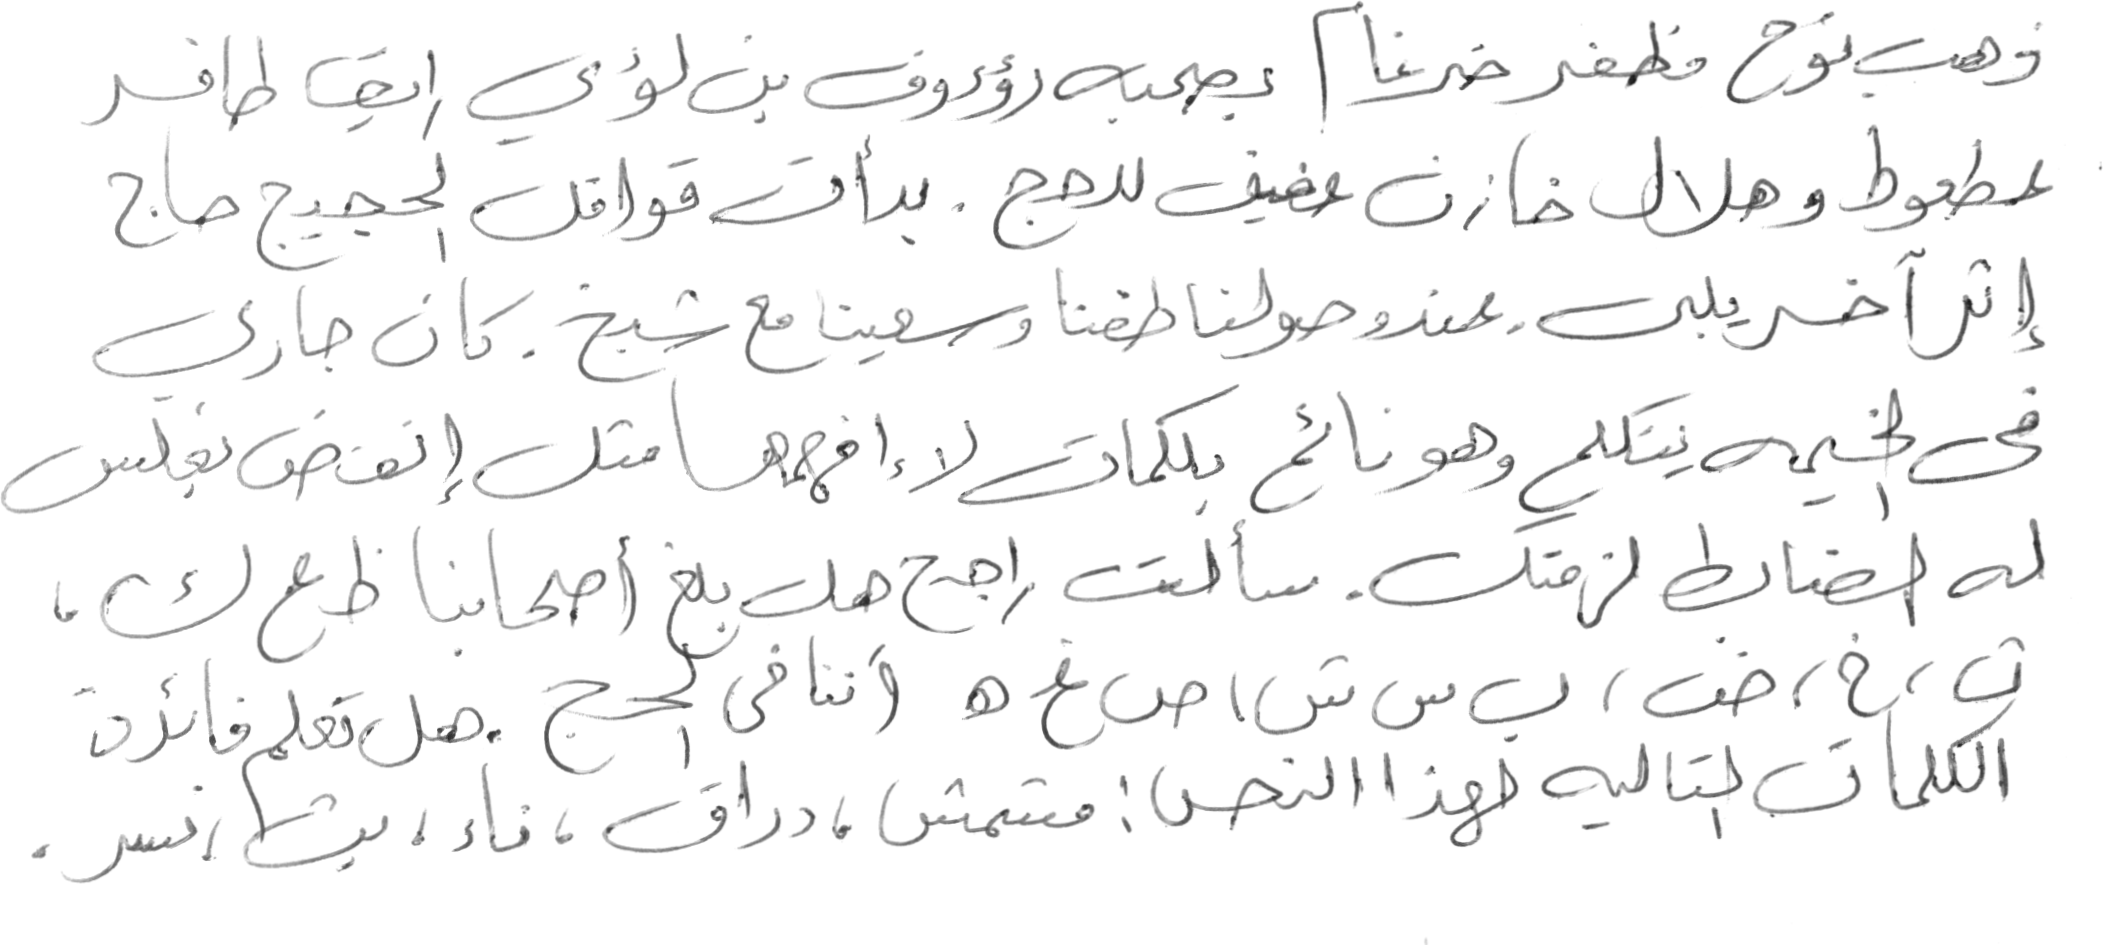 ذهب نوح مظفر ضرغام بصحبه رؤوف بن لؤي رايق ظافر
عطعوط وهلال خازن عفيف للحج . بدأت قوافل الحجيج حاج
إثر آخر يلبى . عند وصولنا طفنا وسعينا مع شيخ . كان جاري
فى الخيمه يتكلم وهو نائم بكلمات لا افهمها مثل إنقض تغلس
له الضابط لزمتك . سألت راجح هل بلغ أصحابنا ظ ع ك ،
ق ، خ ، ض ، ب س ش ، ص غ ه أننا فى الحج . هل تعلم فائدة
الكلمات التاليه لهذا النص : مشمش ، دراق ، ناء ، بث ، نسر .